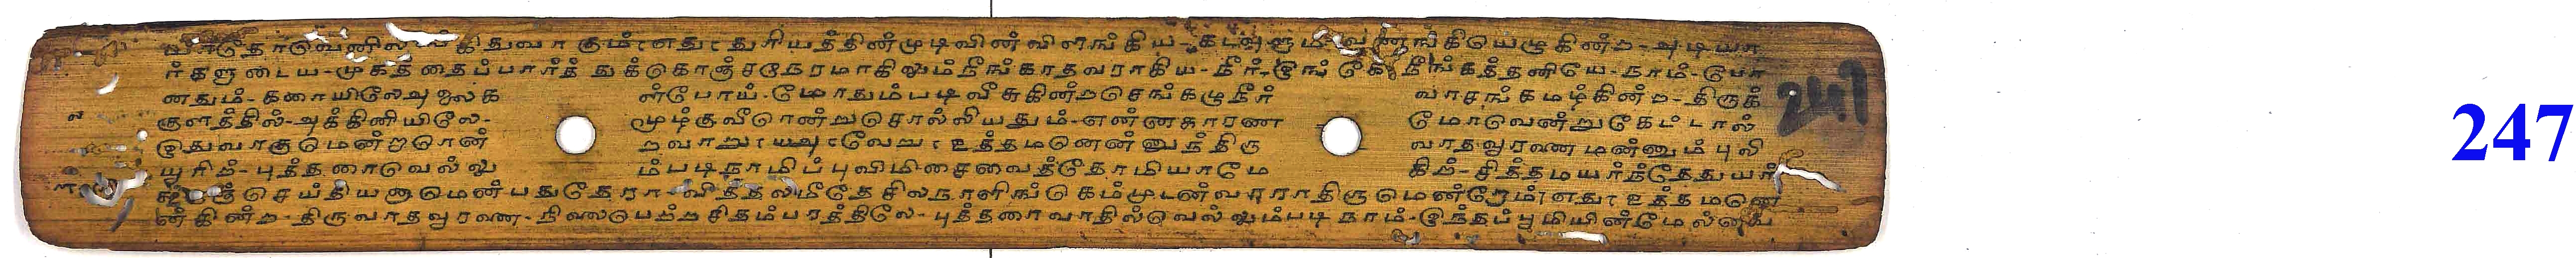 கிதுவா கும்; எது; துரியத்தின்முடிவின் விளங்கிய - கடவுளும் - வணங்கியெழுகின்ற - அடியா
ர்களுடைய - முகத்தைப்பார்த் துக்கொஞ்சநேரமாகிலும்நீங்காதவராகிய - நீர் - இங் கே நீங்கத்தனியே - நாம் - போ
னதும் - கரையிலேஅலக ள்போய் - மோதும்படிவீசுகின்றசெங்கழுநீர் வாசங்கமழ்கின்ற - திருக்
குளத்தில் - அக்கினியிலே - மூழ்குவீரென்றுசொல்லியதும் - என்னகாரண மோவென்றுகேட்டால்
இதுவாகுமென்றரென் றவாறு; யஅ; வேறு; உத்தமனென்னுந்திரு வாதவூரனைமன்னும் புலி
யூரிற் - புத்தரைவெல்லு ம்படிநாமிப்புவிமிசைவைத்தோமியாமே கிற் - சித்தமயர்ந்தேதுயர்
செய்தியனாமென்பதுதேரா - வித்தலமீதேசிலநாளிங்கெம்முடன்வாராதிருமென்றேம்; எது; உத்தமனெ
ன்கின்ற - திருவாதவூரனை - நிலைபெற்ற சிதம்பரத்திலே - புத்தரைவாதில்வெல்லும்படி நாம் - இந்தப்பூமியின்மேல்வை
247
247